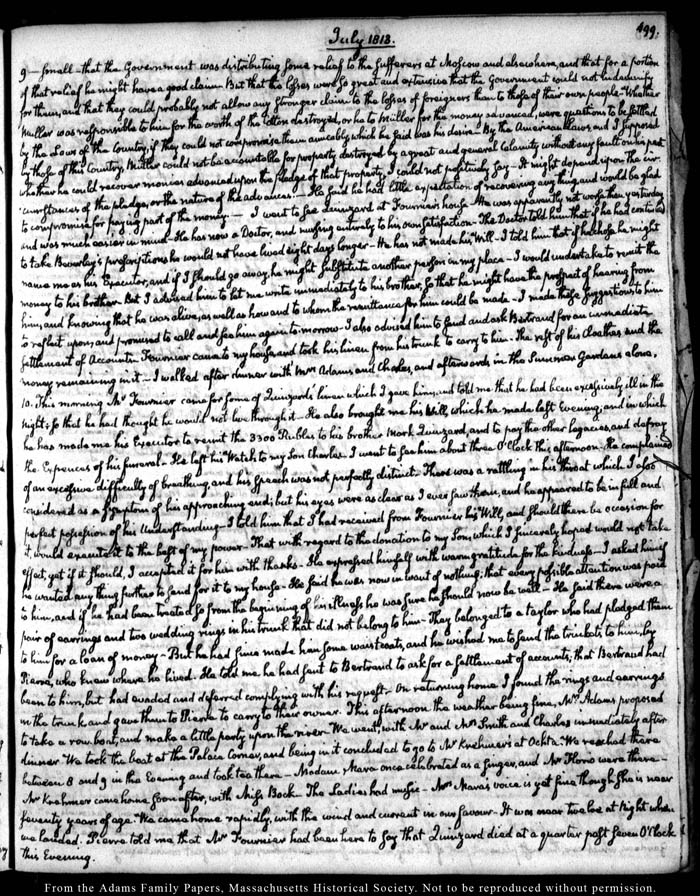 499.
July 1813.
9 — small - that the Government was distributing some relief to the sufferers at Moscow and elsewhere, and that for a portion
of that relief he might have a good claim But that the losses were so great and extensive that the Government could not indemnify
for them, and that they could probably not allow any stronger claim to the losses of foreigners than to those of their own people - Whether
Müller was responsible to him for the worth of the Cotton destroyed, or he to Müller for the money advanced, were questions to be settled
by the Laws of the Country, if they could not compromise them amicably which he said was his desire. By the American laws and I supposed
by those of this Country, Müller could not be accountable for property destroyed by a great and general Calamity without any fault on his part
whether he could recover monies advanced upon the pledge of that property, I could not positively say - It might depend upon the cir-
cumstances of the pledge, or the nature of the advances - He said he had little expectation of recovering any thing, and would be glad
to compromise for paying part of the money — I went to see Quinzard at Fournier's house. He was apparently not worse than yesterday
and was much easier in mind - He has now a Doctor, and nursing entirely to his own satisfaction - The Doctor told him that if he had continued
to take Beverley's prescriptions he would not have lived eight days longer - He has not made his Will - I told him that if he chose he might
name me as his Executor, and if I should go away, he might substitute another person in my place - I would undertake to remit the
money to his brother But I advised him to let me write immediately to his brother, so that he might have the prospect of hearing from
him, and knowing that he was alive, as well as how and to whom the remittance for him could be made - I made these suggestions to him
to reflect upon, and promised to call and see him again to-morrow - I also advised him to send and ask Bertrand for an immediate
settlement of Accounts. Fournier came to my house and took his linen from his trunk to carry to him - The rest of his Cloathes and the
money remaining in it — I walked after dinner with Mrs Adams and Charles, and afterwards in the Summer Gardens alone.
10. This morning Mr Fournier came for some of Quinzard's linen which I gave him, and told me that he had been excessively ill in the
night, so that he had thought he would not live through it - He also brought me his Will, which he made last Evening, and in which
he has made me his Executor to remit the 3300 Rubles to his brother Mark Quinzard, and to pay the other legacies, and defray
the Expences of his funeral - He left his Watch to my Son Charles. I went to see him about three O'Clock this afternoon. He complained
of an excessive difficulty of breathing, and his speach was not perfectly distinct. There was a rattling in his throat which I also
considered as a symptom of his approaching end; but his eyes were as clear as I ever saw them, and he appeared to be in full and
perfect possession of his Understanding - I told him that I had received from Fournier his Will, and should there be occasion for
it, would execute it to the best of my power - That with regard to the donation to my Son, which I sincerely hoped would not take
effect, yet if it should, I accepted it for him with thanks - He expressed himself with warm gratitude for the kindness - I asked him if
he wanted any thing further to send for it to my house - He said he was now in want of nothing; that every possible attention was paid
to him, and if he had been treated so from the beginning of his illness he was sure he should now be well - He said there were a
pair of earrings and two wedding rings in his trunk that did not belong to him - They belonged to a taylor who had pledged them
to him for a loan of money - But he had since made him some waistcoats, and he wished me to send the trinkets to him, by
Pierre, who knew where he lived. He told me he had sent to Bertrand to ask for a settlement of accounts; that Bertrand had
been to him, but had evaded and deferred complying with his request - On returning home I found the rings and earrings
in the trunk and gave them to Pierre to carry to their owner. This afternoon the weather being fine, Mrs Adams proposed
to take a row boat, and make a little party upon the river. We went, with Mr and Mrs Smith and Charles immediately after
dinner. We took the boat at the Palace Corner, and being in it concluded to go to Mr Krehmers at Ochta - We reached there
between 8 and 9 in the Evening and took tea there - Madame Mara once celebrated as a singer, and Mr Florio were there -
Mr Krehmer came home soon after, with Miss Bock - The Ladies had music - Mrs Mara's voice is yet fine though She is near
seventy years of age - We came home rapidly, with the wind and current in our favour - It was near twelve at Night when
we landed. Pierre told me that Mr Fournier had been here to say that Quinzard died at a quarter past Seven O'Clock
this Evening.
From the Adams Family Papers, Massachusetts Historical Society. Not to be reproduced without permission.